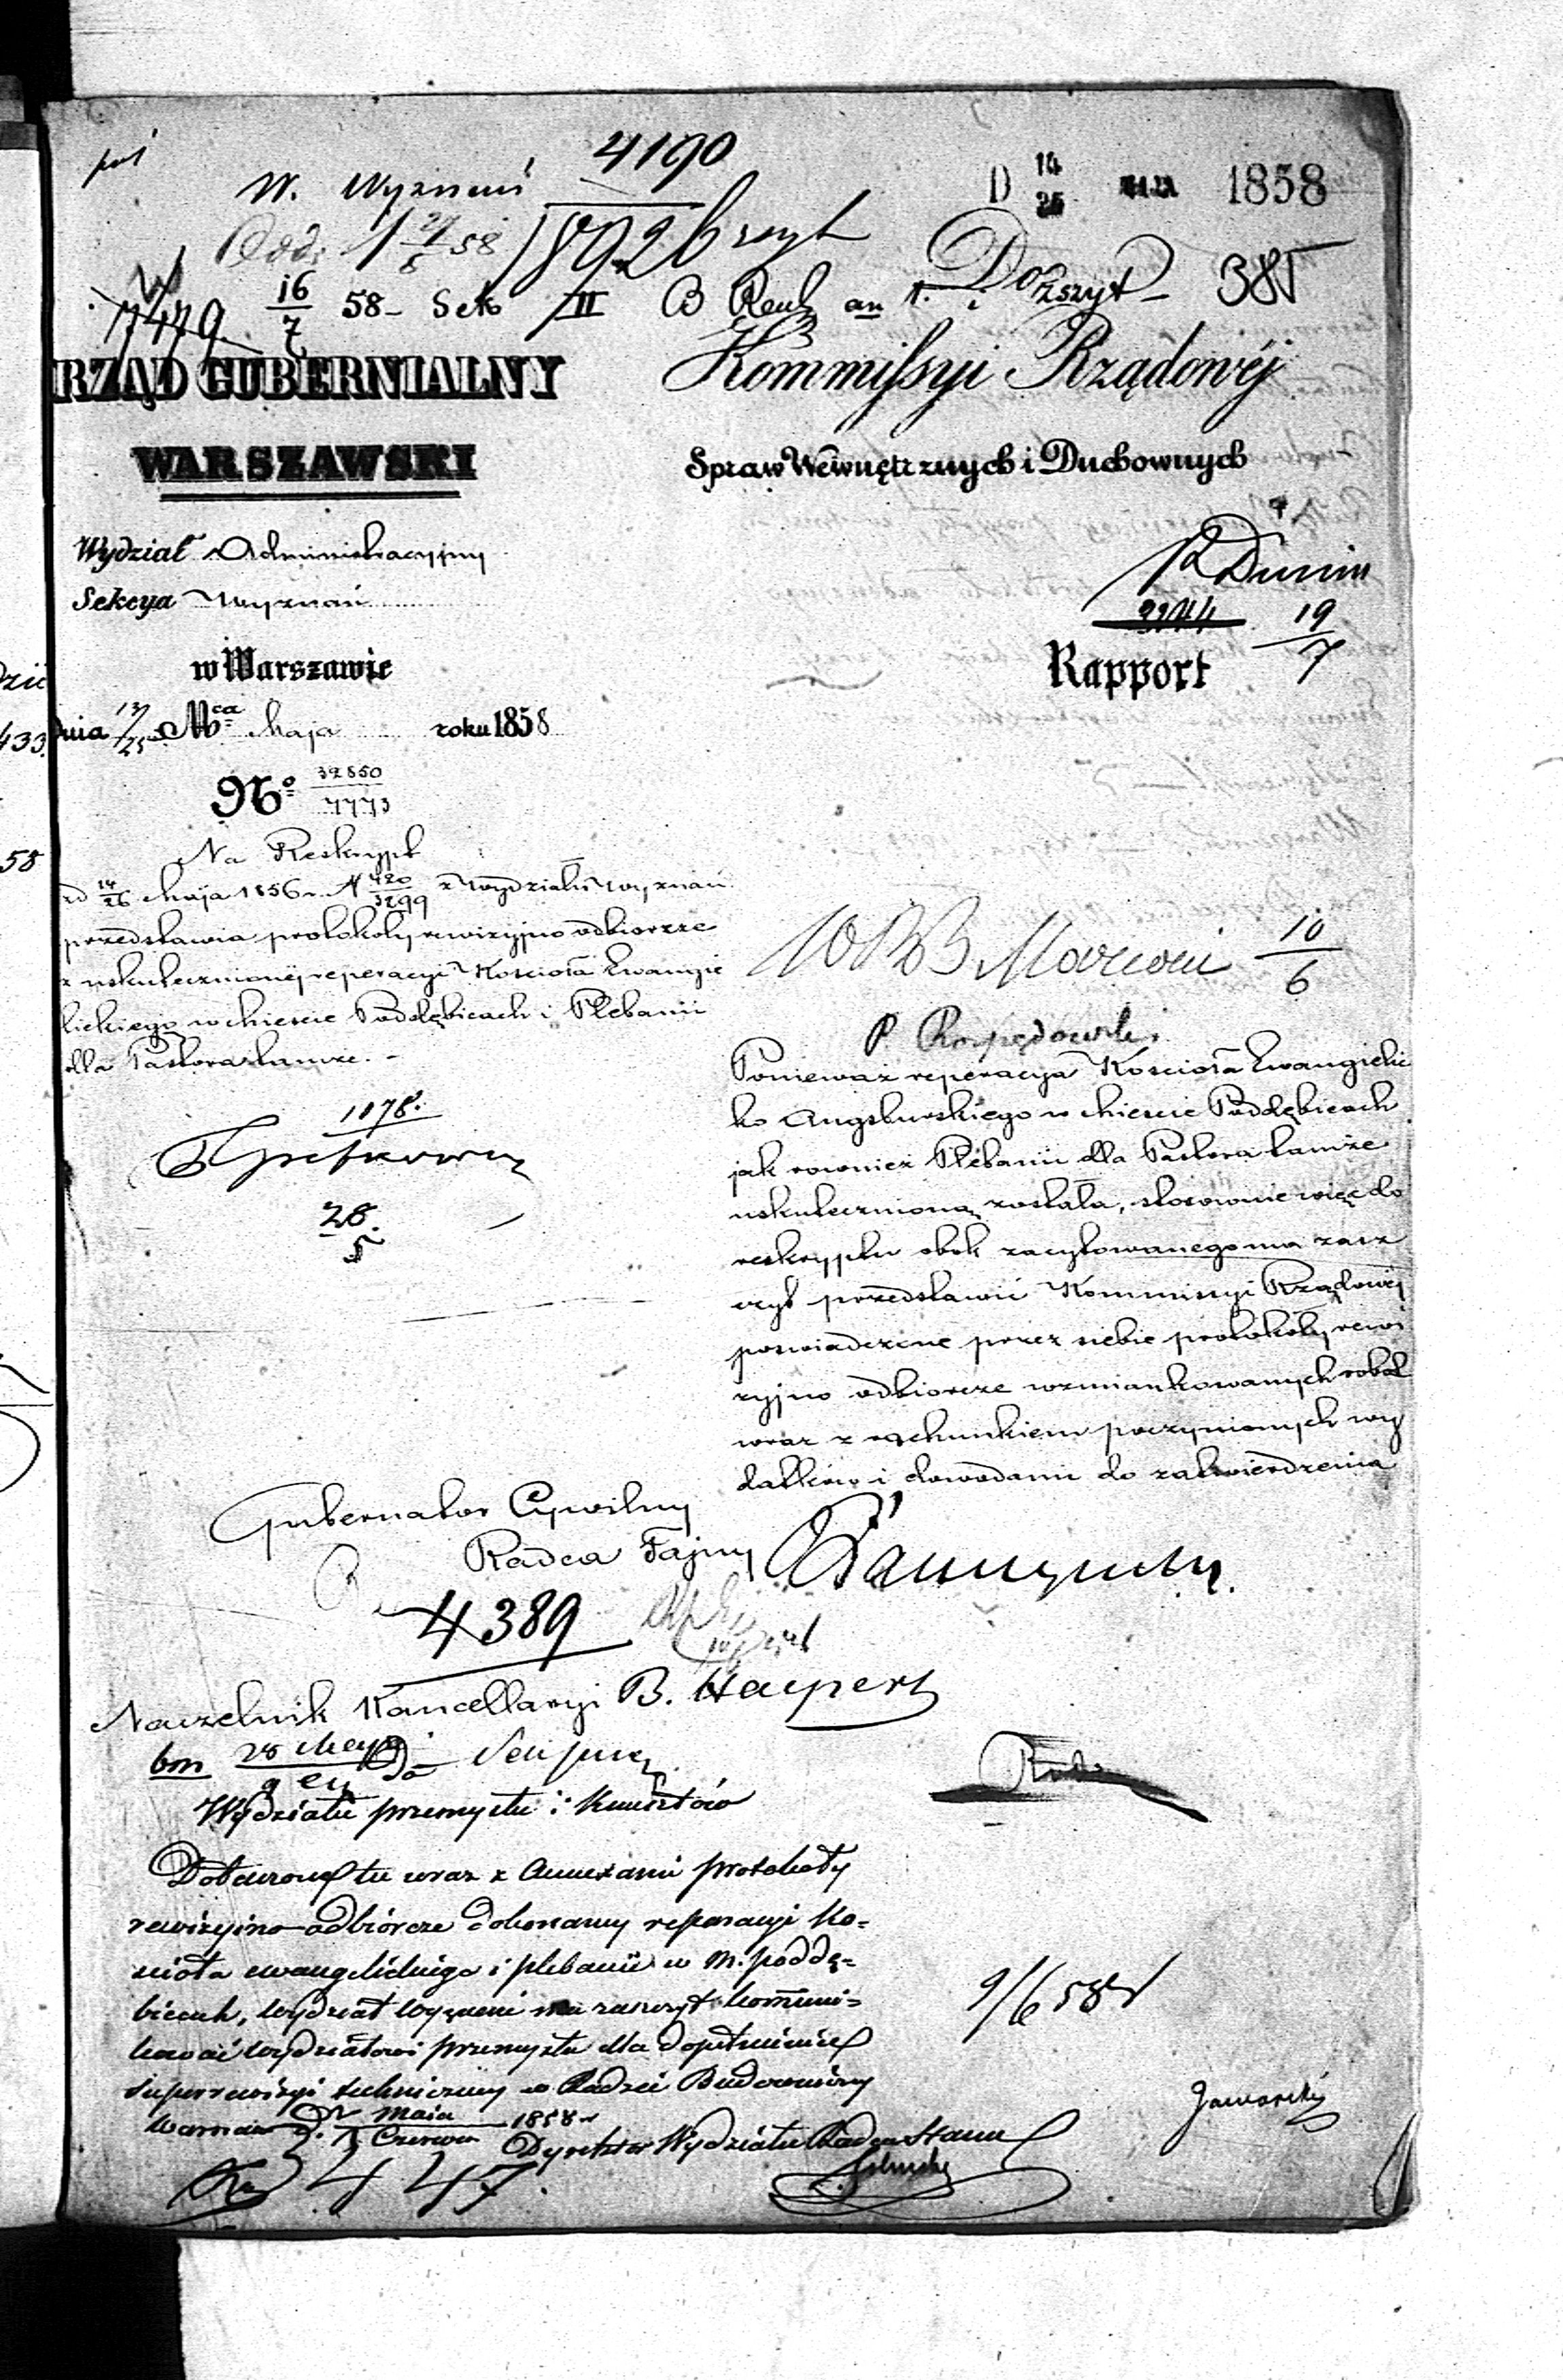 4190
D 14/26 MAJA 1858
W. Wyznań
18926
Do
385
7479 16/7 58 Sek III
RZĄD GUBERNIALNY
WARSZAWSKI
Wydział Administracyjny
Sekcya Wyznań
w Warszawie
dnia 13/25 Mca Maja roku 1858
No 32850/7773
Na Reskrypt
od 14/26 Maja 1856 r. N 420/3299 z Wydziału Wyznań
przedstawia protokoły rewizyjno odbiorcze
z uskutecznionéj reperacyi Kościoła Ewangie
lickiego w Mieście Poddębicach i Plebanii
dla Pastora tamże.
1178.
28/5
Kommissyi Rządowéj
Spraw Wewnętrznych i Duchownych
Dunin
19/7
Rapport
10/6
P. Rospędowski
Ponieważ reperacyja Kościoła Ewangielic
ko Augsburskiego w Mieście Poddębicach
jak rownież Plebanii dla Pastora tamże
uskutecznioną została, stosownie więc do
reskryptu obok zacytowanego ma zasz
czyt przedstawić Kommissyi Rządowéj
poswiadczone przez siebie protokóły rewi
zyjno odbiorcze wzmiankowanych robót
wraz z rachunkiem poczynionych wy
datków i dowodami do zatwierdzenia
Gubernator Cywilny
Radca Tajny
4389
Naczelnik Kancellaryi B. Halpert
Do
Wydziału przemysłu i Kunsztów
Dołączone tu wraz z Annexami protokoły
rewizyino-odbiórcze dokonanej reparacyi Ko=
scioła ewangelickiego i plebanii w m. poddę=
bicach, Wydział Wyznań ma zaszczyt kommuni=
kować Wydziałowi przemysłu dla dopełnienia
superrewizyi techniczney w Radzie Budowniczey
Warszawa D. Maia/Czerwca 1858 r
Dyrektor Wydziału Radca Stanu
9/6 58 r
Jaworski
447